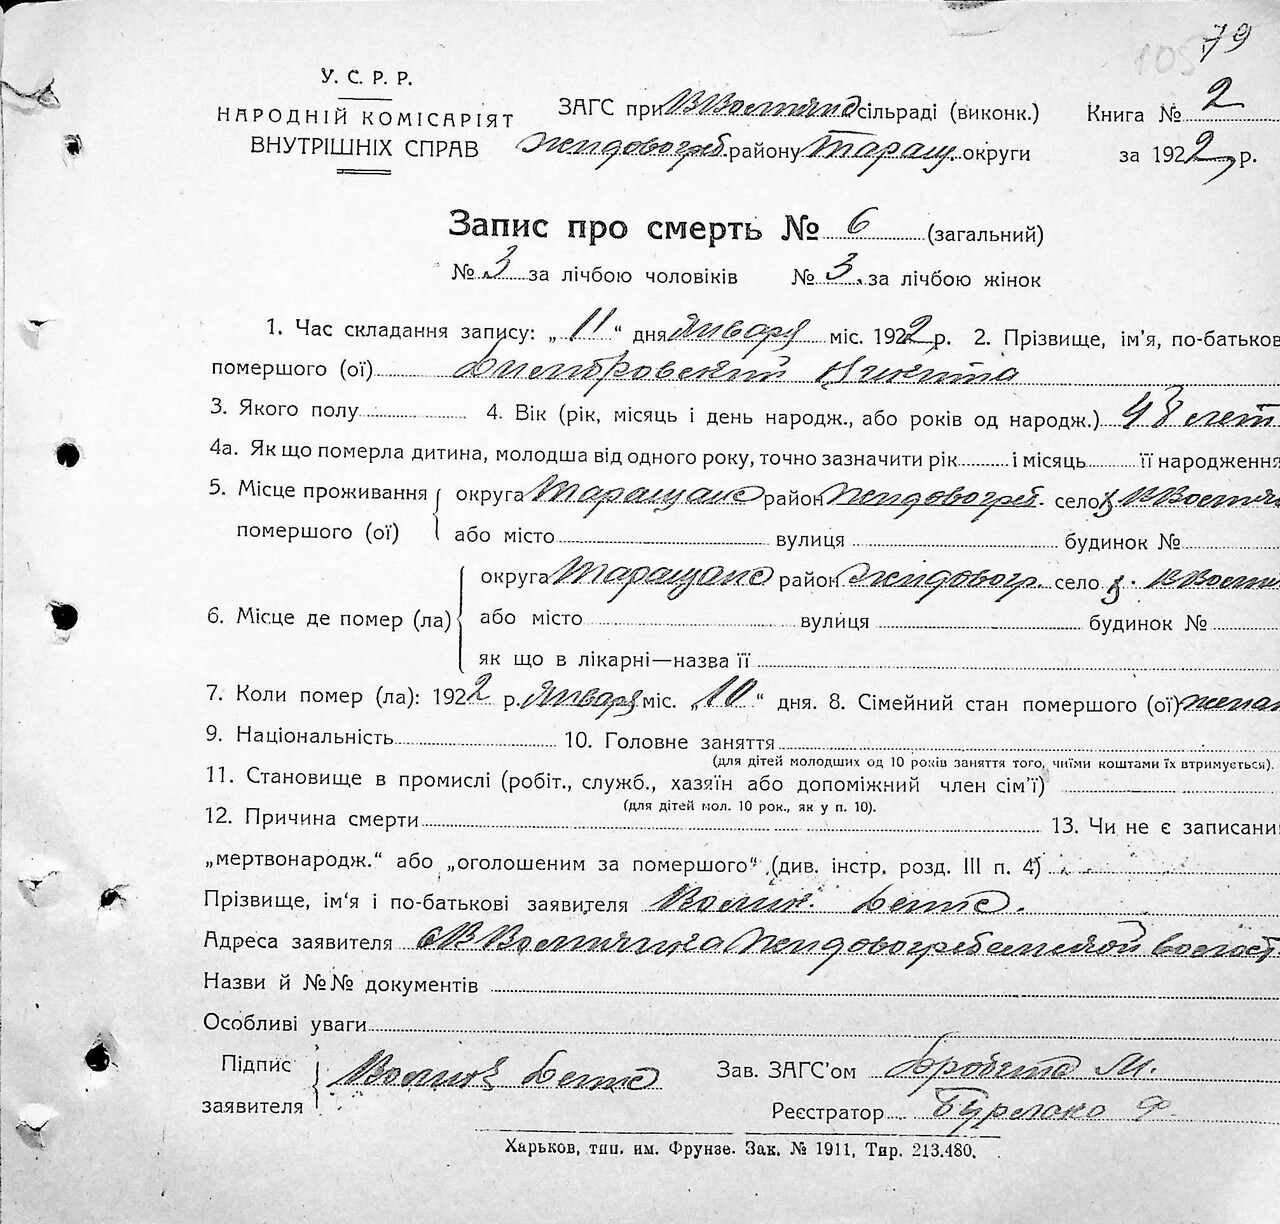 79
105
У. С. Р. Р.
НАРОДНІЙ КОМІСАРІЯТ
ВНУТРІШНІХ СПРАВ
ЗАГС при сільраді (виконк.)
Жидовогреб. району Таращ. округи
Книга № 2
за 1922 р.
Запис про смерть № 6 (загальний)
№ 3 за лічбою чоловіків № 3. за лічбою жінок
1. Час складання запису: „ 11 “ дня Января міс. 1922 р. 2. Прізвище, ім'я, по-батьков
помершого (ої) Димбровский Никита
3. Якого полу 4. Вік (рік, місяць і день народж., або років од народж.) 48 лет
4а. Як що померла дитина, молодша від одного року, точно зазначити рік і місяць її народження
5. Місце проживання округа Таращанс район Жидовогреб. село
помершого (ої) або місто вулиця будинок №
округа Таращанс район Жидовогр. село
6. Місце де помер (ла) або місто вулиця будинок №
як що в лікарні—назва її
7. Коли помер (ла): 1922 р. Января міс. „ 10 “ дня. 8. Сімейний стан помершого (ої) женат
9. Національність 10. Головне заняття
(для дітей молодших од 10 років заняття того, чиїми коштами їх втримується).
11. Становище в промислі (робіт., служб., хазяїн або допоміжний член сім'ї)
(для дітей мол. 10 рок., як у п. 10).
12. Причина смерти 13. Чи не є записани
„мертвонародж.“ або „оголошеним за помершого“ (див. інстр. розд. III п. 4)
Прізвище, ім'я і по-батькові заявителя
Адреса заявителя Жидовогребельской волост
Назви й №№ документів
Особливі уваги
Підпис
заявителя
Зав. ЗАГС'ом М.
Реєстратор Бурлако Ф.
Харьков, тип. им. Фрунзе. Зак. № 1911, Тир. 213.480.